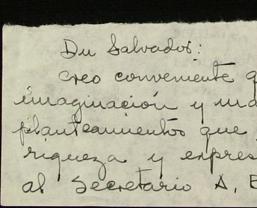 Dn Salvador:
Creo conveniente q
imaginación y ma
planteamientos que
riqueza y expres
al Secretario A. E